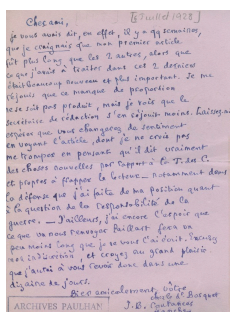 [5 juillet 1928]
Cher ami,
je vous avais dit, en effet, il y a qq semaines,
que je craignais que mon premier article
fût plus long que les 2 autres, alors que
ce que j'avais à traiter dans ces 2 derniers
était beaucoup nouveau et plus important. Je me
réjouis que ce manque de proportion
ne se soit pas produit, mais je vois que le
secrétaire de rédaction s'en réjouit moins.
espérer que vous changerez de sentiment
en voyant l'article, dont je ne crois pas
me tromper en pensant qu'il dit vraiment
des choses nouvelles par rapport à la T. des C.
et propres à frapper le lecteur — notamment dans
la défense que j'ai faite de ma position quant
à la question de la responsabilité de la
guerre. — D'ailleurs, j'ai encore l'espoir que
ce que va nous renvoyer Paillart fera un
peu moins long que je ne vous l'ai écrit. Excusez
mon indiscrétion, et croyez au grand plaisir
que j'aurai à vous revoir donc dans une
dizaine de jours.
Bien amicalement, votre
J. B.
ARCHIVES PAULHAN